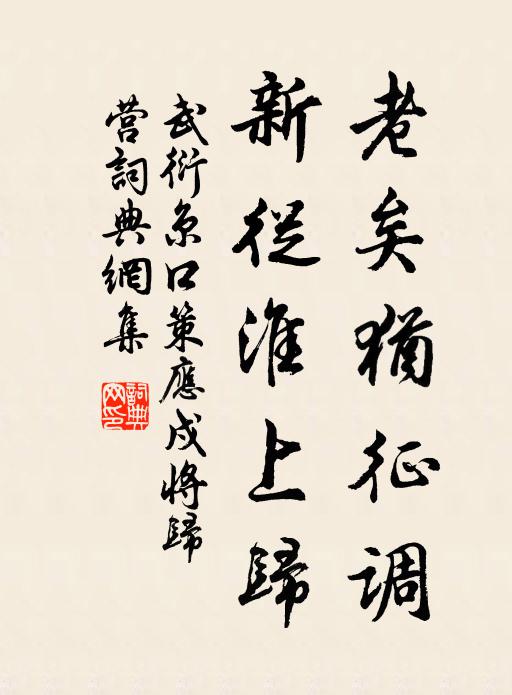 老矣猶征調
新從淮上歸
武衍京口策應戍將歸
營詞典網集
詞典網印